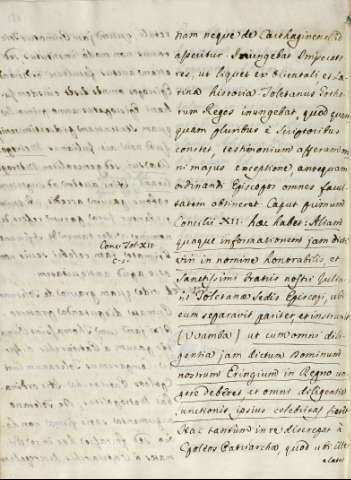 nam neque de Carthaginensi id
asseritur. Inungebat Imperato
res, ut liquet ex
historia Toletanus Gotho
rum Reges inungebat, quod quan
quam pluribus è Scriptoribus
constet, testimonium afferam om
ni majus exceptione, antequam
ordinandi Episcopos omnes facul
tatem obtineret. Caput primum
Concilii XII. hæc habet: Aliam
quoque informationem jam dicti
viri in nomine honorabilis et
Sanctissimi Fratris nostri Julia
ni Toletanæ Sedis Episcopi, ubi
eum separavit pariter et instruxit
(Vvamba) ut cum omni dili
gentia jam dictum Dominum
nostrum Eringium in Regno un
gere deberet et omni diligentia
unctionis ipsius celebritas fieret
Hac tantum in re discrepat à
Patriarcha quod ubi ille
Conci. Tol. XII.
c. 1.